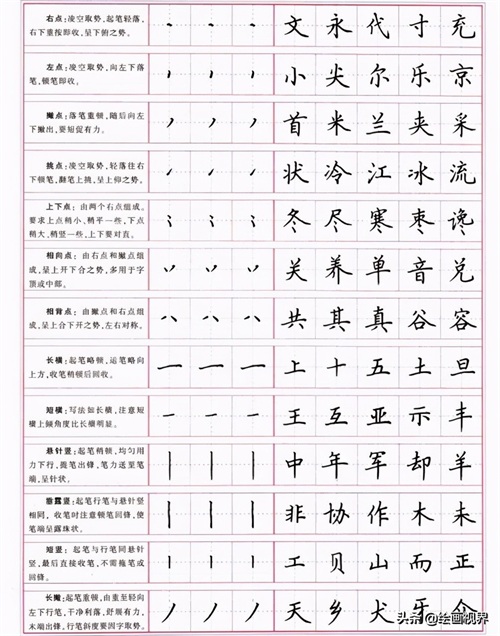 右点：凌空取势，起笔轻落，
右下重按即收，呈下俯之势。
文 永 代 寸 充
左点：凌空取势，向左下落
笔，顿笔即收。
小 尖 尔 乐 京
撇点：落笔重顿，随后向左
下撇出，要短促有力。
首 米 兰 夹 采
挑点：凌空取势，轻落往右
下顿笔，翻笔上挑，呈上仰之势。
状 冷 江 冰 流
上下点：由两个右点组成。
要求上点稍小，稍平一些，下点
稍大，稍竖一些，上下要对直。
冬 尽 寒 枣 谗
相向点：由右点和撇点组
成，呈上开下合之势，多用于字
顶或中部。
关 养 单 音 兑
相背点：由撇点和右点组
成，呈上合下开之势，左右对称。
共 其 真 谷 容
长横：起笔略顿，运笔略向
上方，收笔稍顿后回收。
上 十 五 土 旦
短横：写法如长横，注意短
横上倾角度比长横明显。
王 互 亚 示 丰
悬针竖：起笔稍顿，均匀用
力下行，提笔出锋，笔力送至笔
端，呈针状。
中 年 军 却 羊
垂露竖：起笔行笔与悬针竖
相同，收笔时注意顿笔回锋，使
笔端呈露珠状。
非 协 作 木 未
短竖：起笔与行笔同悬针
竖，最后直接收笔，不需拖笔或
回锋。
工 贝 山 而 正
长撇：起笔重顿，由重至轻向
左下行笔，干净利落，舒顺有力，
末端出锋，行笔斜度要因字取势。
天 乡 犬 牙 介
头条 @绘画视界